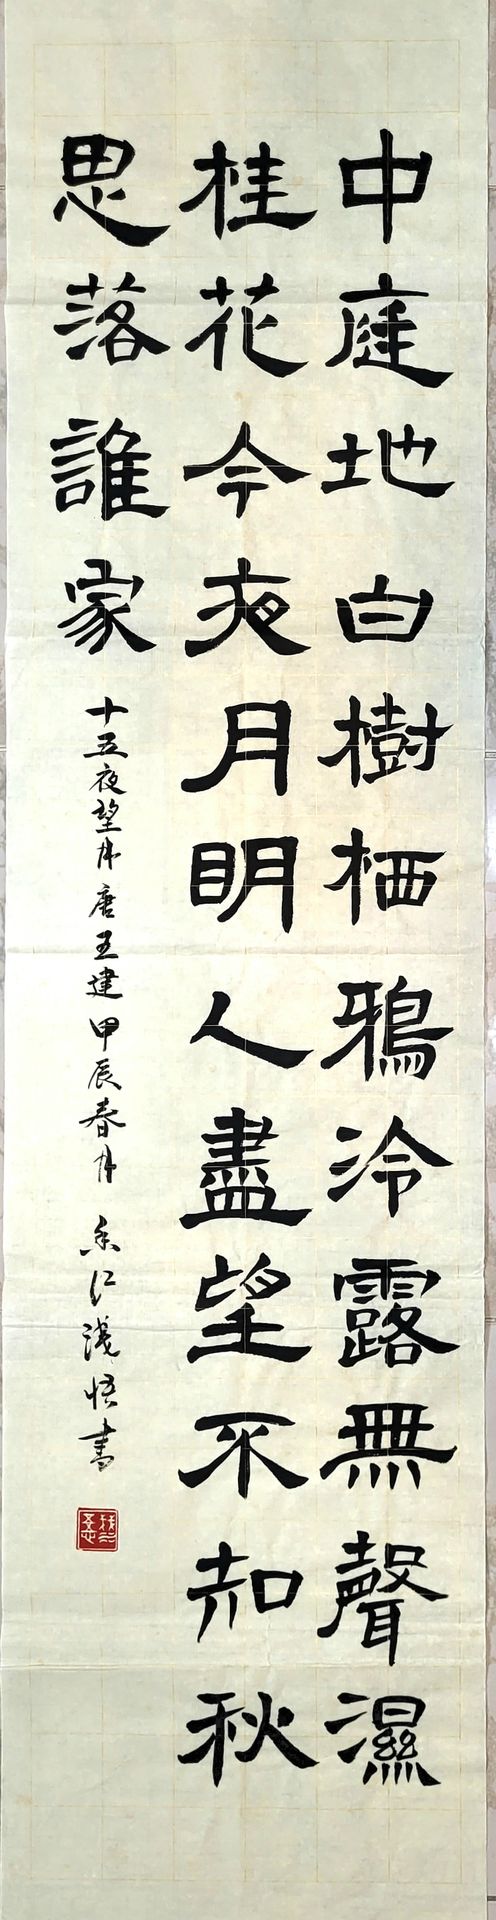 中庭地白樹栖鴉冷露無聲濕
桂花今夜月明人盡望不知秋
思落誰家
十五夜望月唐王建甲辰春月 淺悟書